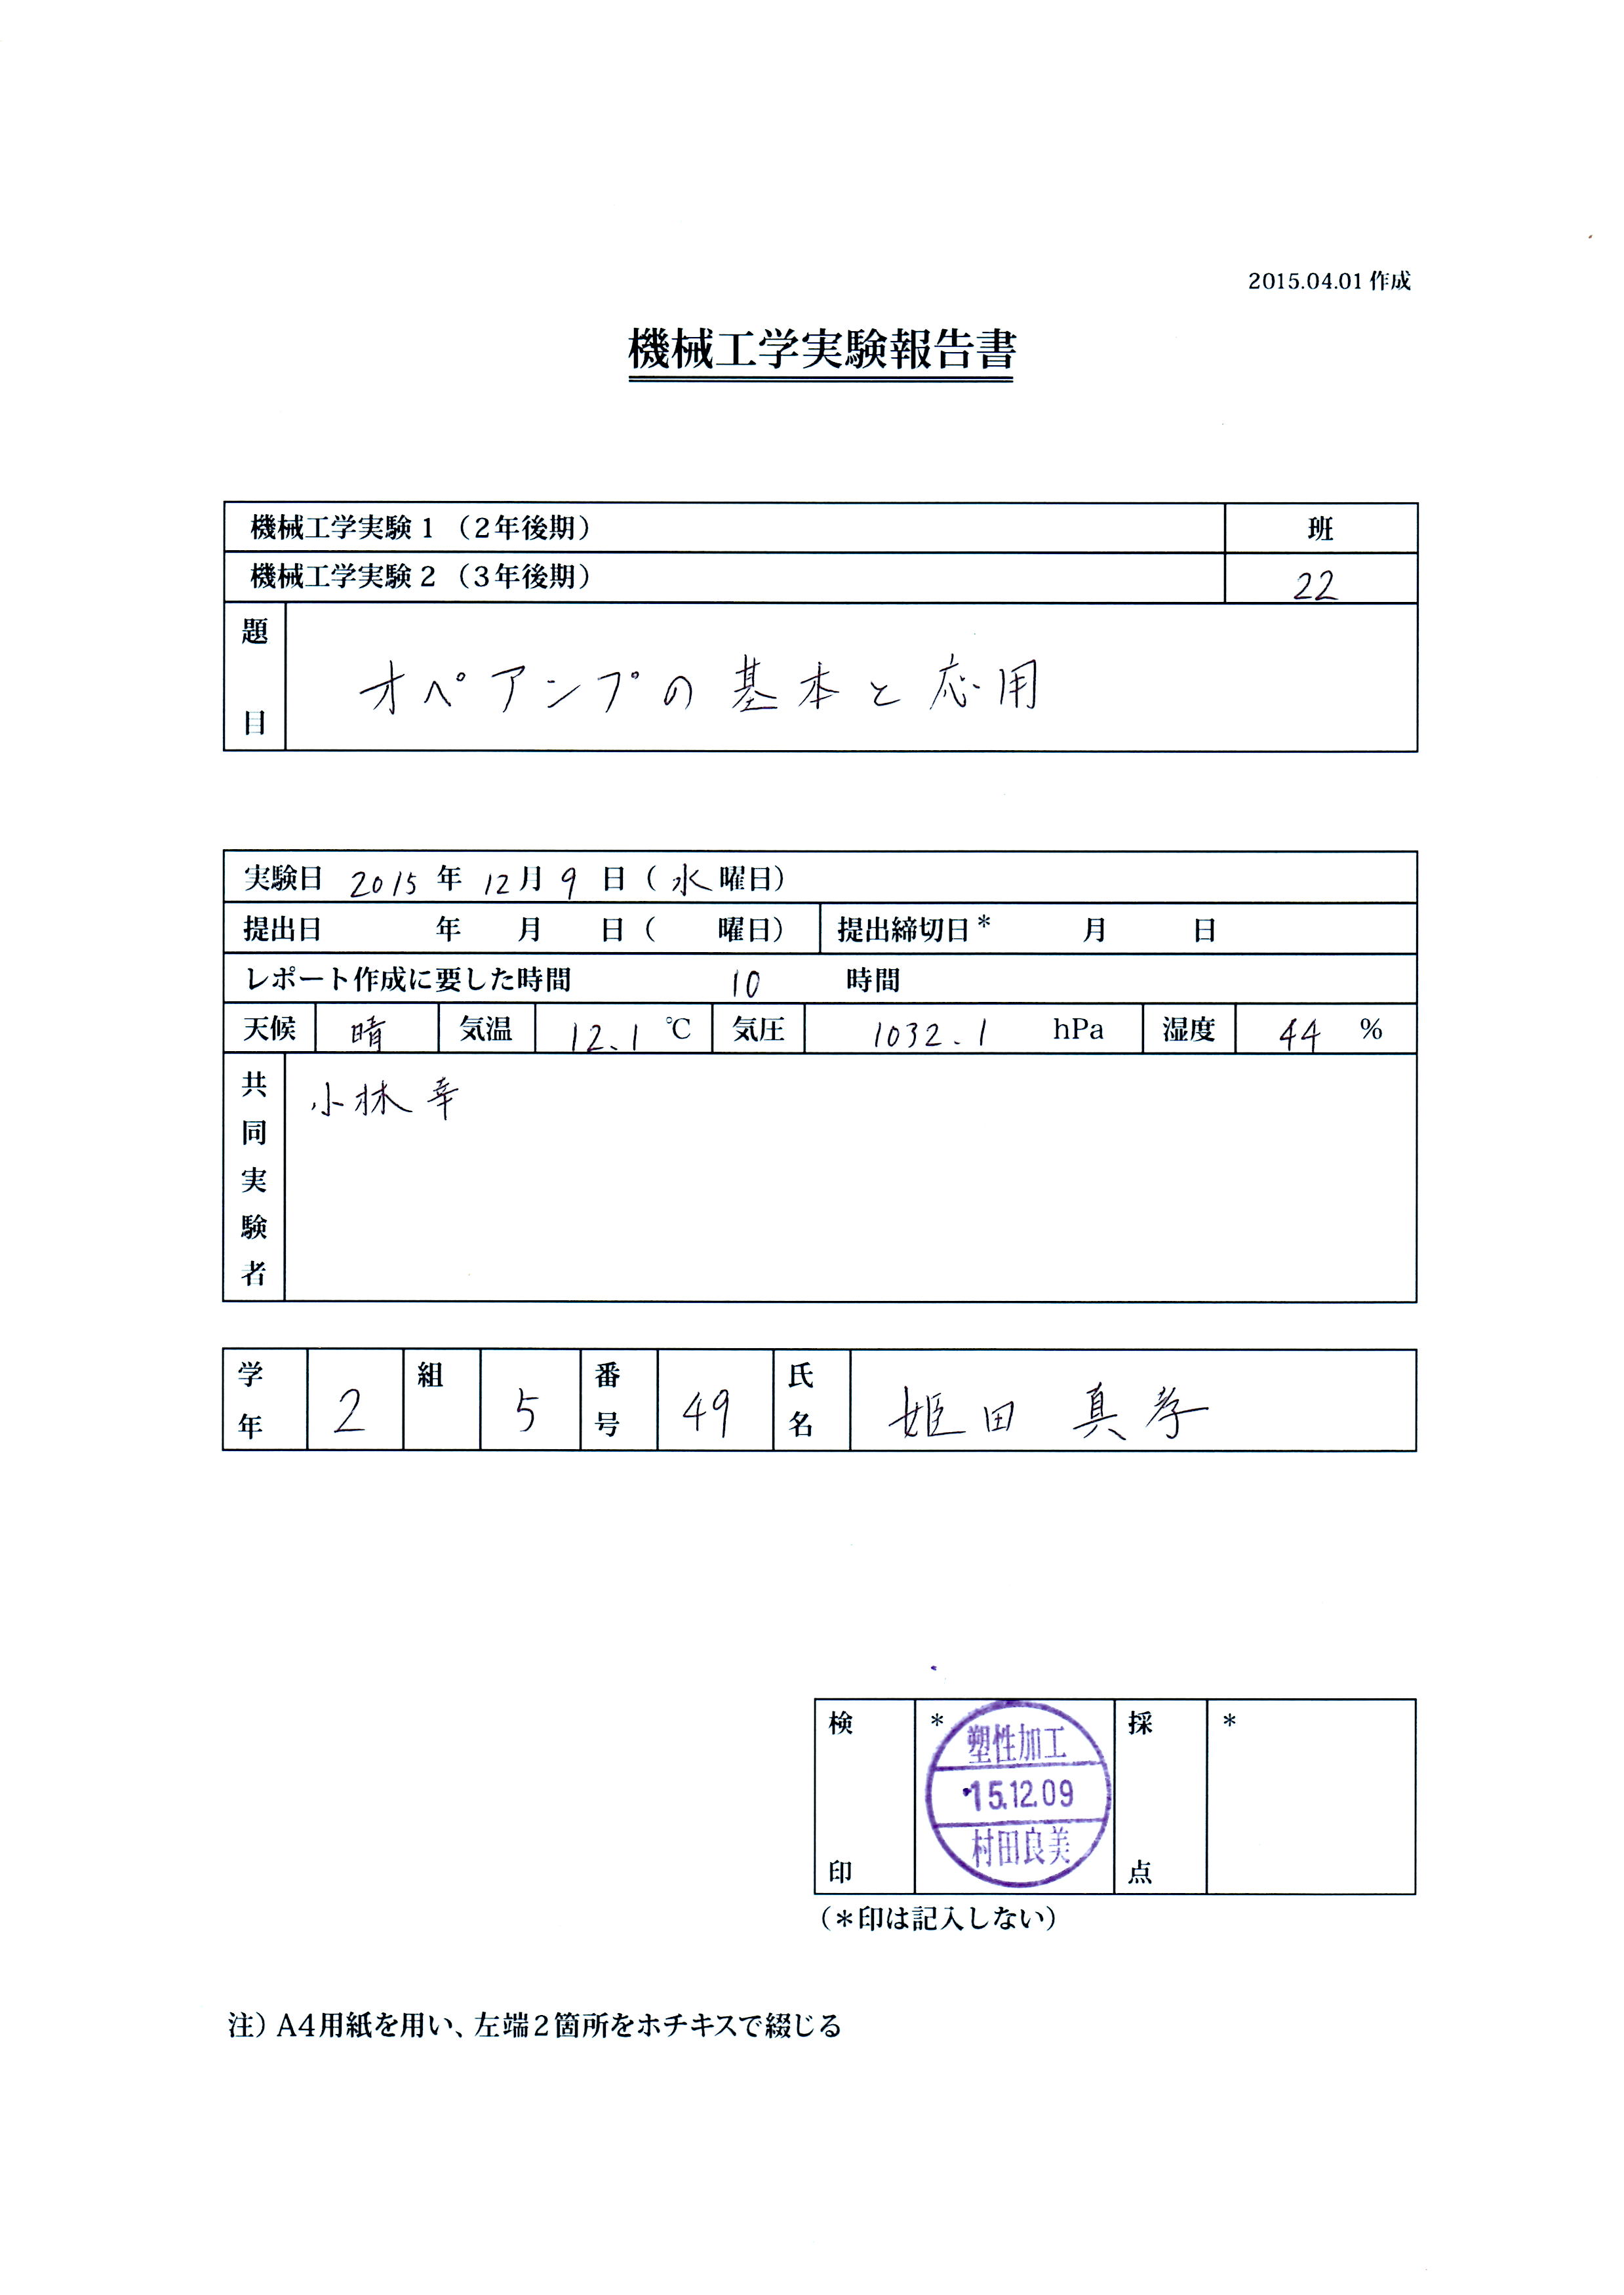 2015.04.01 作成
機械工学実験報告書
機械工学実験 1 (2年後期) 班
機械工学実験 2 (3年後期) 22
題目 オペアンプの基本と応用
実験日 2015 年 12 月 9 日 ( 水 曜日)
提出日 年 月 日 ( 曜日) 提出締切日* 月 日
レポート作成に要した時間 10 時間
天候 晴 気温 12.1 ℃ 気圧 1032.1 hPa 湿度 44 %
共同実験者 小林 幸
学年 2 組 5 番号 49 氏名 姫田 真孝
検印 * 採点 *
塑性加工
'15.12.09
村田良美
(*印は記入しない)
注) A4用紙を用い、左端2箇所をホチキスで綴じる